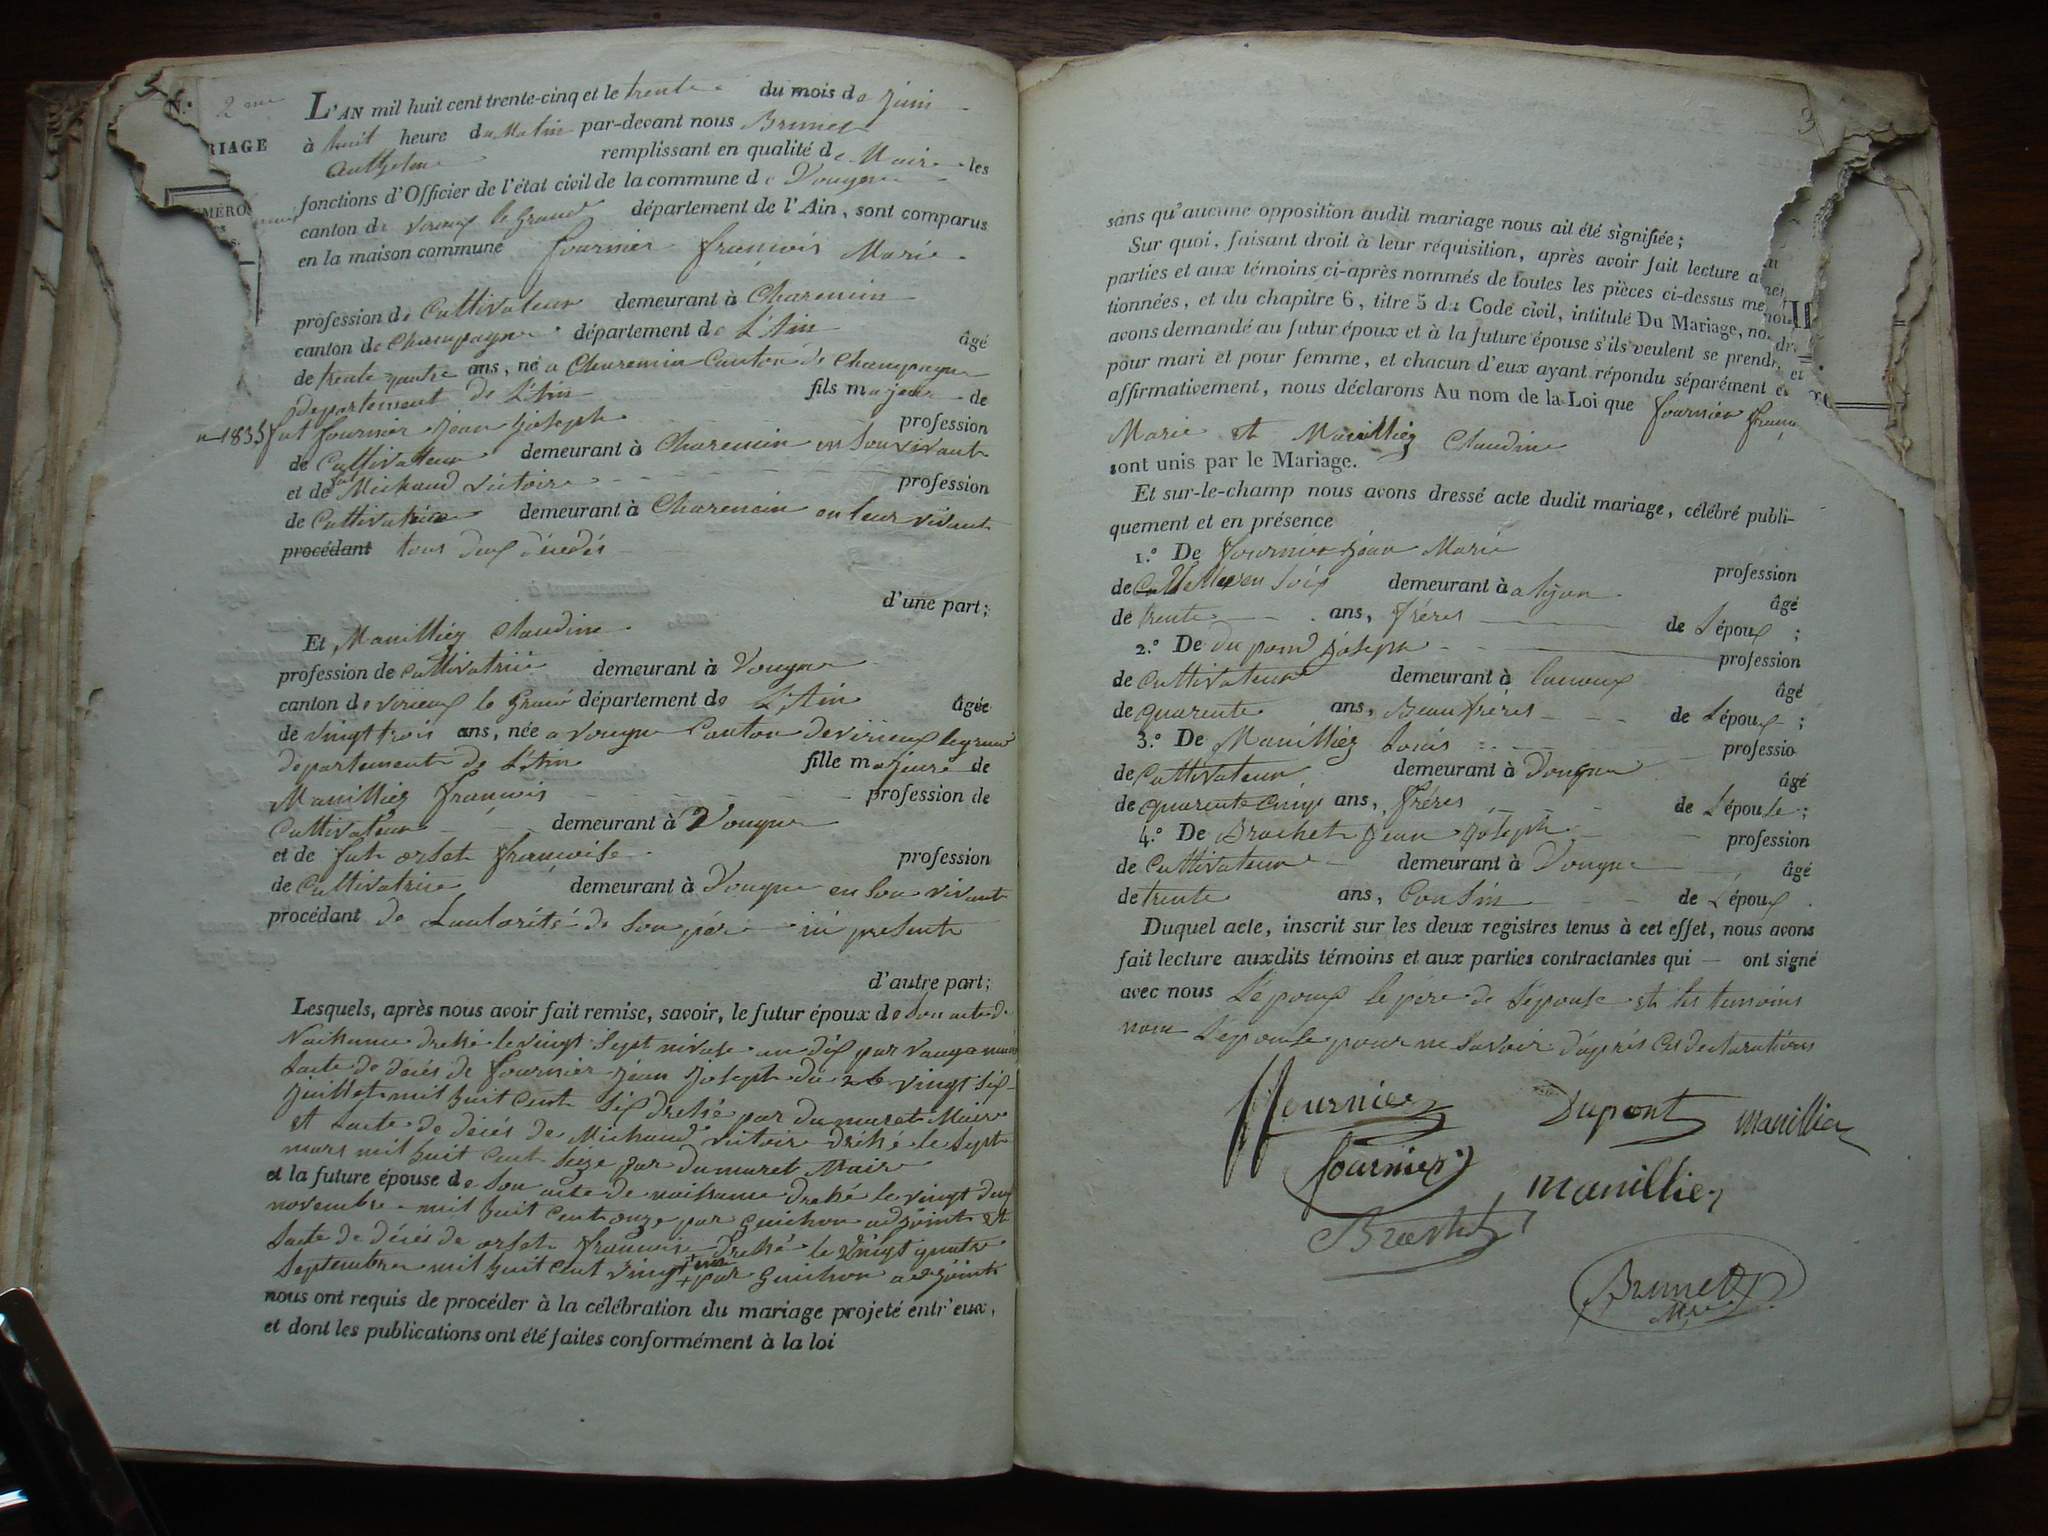 N.° 2me
RIAGE
MÉROS
L'AN mil huit cent trente-cinq et le trente du mois de juin
à huit heure du Matin par-devant nous Brunet
Anthelme remplissant en qualité de Maire les
fonctions d'Officier de l'état civil de la commune de Vongne
canton de virieux le grand département de l'Ain, sont comparus
en la maison commune fournier françois Marie
profession de Cultivateur demeurant à Charencin
canton de Champagne département de L'Ain âgé
de trente quatre ans, né a Charencin Canton de Champagne
departement de L'Ain fils majeur de
1835 fut fournier jean joseph profession
de Cultivateur demeurant à Charencin en Son vivant
et de fut Michaud victoire profession
de Cultivatrice demeurant à Charencin en leur vivent
procédant tous deux décédés
d'une part;
Et Manilliez Claudine
profession de cultivatrice demeurant à Vongne
canton de virieux le Grand département de L'Ain âgée
de vingt trois ans, née a vongne Canton de virieux le grand
departement de L'Ain fille majeure de
Manilliez françois profession de
Cultivateur demeurant à Vongne
et de fut orset françoise profession
de Cultivatrice demeurant à Vongne en Son vivant
procédant de Lautorité de Son père ici présent
d'autre part;
Lesquels, après nous avoir fait remise, savoir, le futur époux de Son acte de
Naissance dressé le vingt Sept nivose an dix par
Lacte de décés de fournier jean joseph du 26 vingt Six
juillet mil huit Cent Six dressé par dumaret Maire
et Lacte de décés de Michaud victoire dréssé le Sept
mars mil huit Cent Seize par dumaret Maire
et la future épouse de Son acte de naissance dressé le vingt deux
novembre mil huit Cent onze par Guichon adjoint et
Lacte de décés de orset françoise dressé le Vingt quatre
Septembre mil huit Cent vingt par Guichon adjoint
nous ont requis de procéder à la célébration du mariage projeté entr'eux,
et dont les publications ont été faites conformément à la loi
sans qu'aucune opposition audit mariage nous ait été signifiée;
Sur quoi, faisant droit à leur réquisition, après avoir fait lecture a
parties et aux témoins ci-après nommés de toutes les pièces ci-dessus me
tionnées, et du chapitre 6, titre 5 du Code civil, intitulé Du Mariage, no
avons demandé au futur époux et à la future épouse s'ils veulent se prendr
pour mari et pour femme, et chacun d'eux ayant répondu séparément e
affirmativement, nous déclarons Au nom de la Loi que fournier franç
Marie et Manilliez Claudine
sont unis par le Mariage.
Et sur-le-champ nous avons dressé acte dudit mariage, célébré publi-
quement et en présence
1.° De fournier jean Marie profession
de demeurant à a lyon âgé
de trente ans, fréres de Lépoux ;
2.° De du pond joseph profession
de Cultivateur demeurant à âgé
de quarente ans, Beaufréres de Lépoux ;
3.° De Manilliez Louis professio
de Cultivateur demeurant à Vongne âgé
de quarente Cinq ans, fréres de Lépouse ;
4.° De Brochet jean joseph profession
de Cultivateur demeurant à Vongne âgé
de trente ans, Cousin de Lépoux .
Duquel acte, inscrit sur les deux registres tenus à cet effet, nous avons
fait lecture auxdits témoins et aux parties contractantes qui — ont signé
avec nous Lépoux le pére de Lépouse et les temoins
non Lépouse pour ne Savoir daprés Ces declarations
fournier Dupont manillier
fournier manillier
Brochet
Brunet
Mre